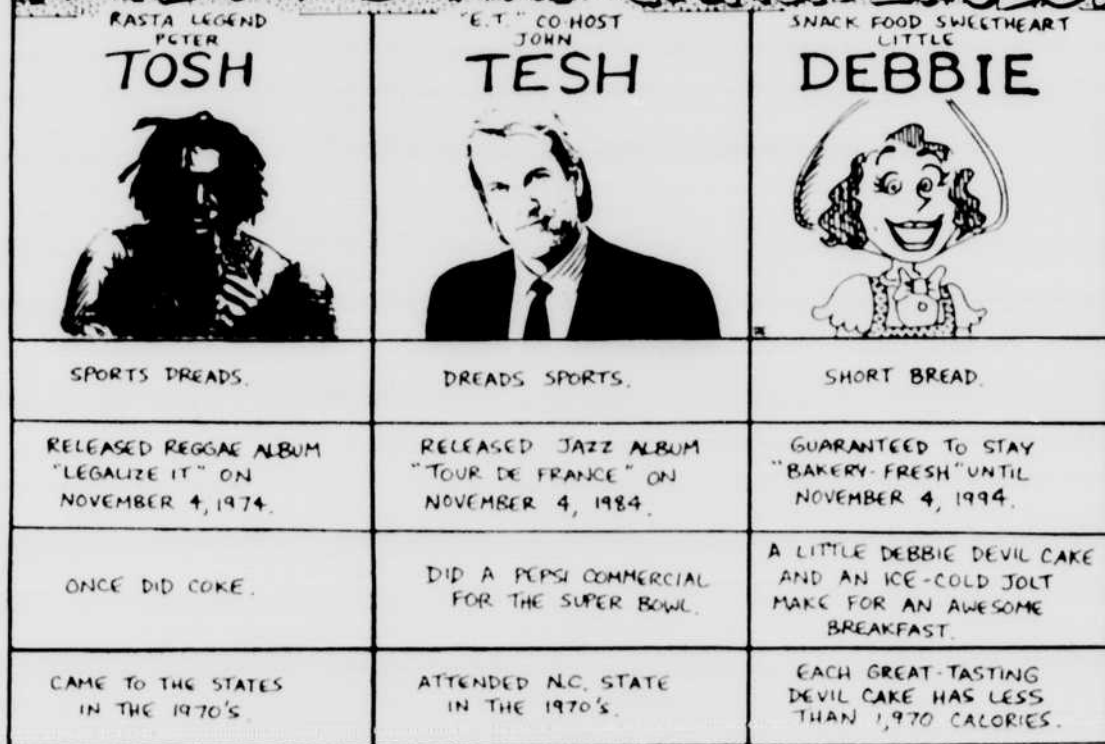 RASTA LEGEND
PETER
TOSH
"E.T." CO-HOST
JOHN
TESH
SNACK FOOD SWEETHEART
LITTLE
DEBBIE
SPORTS DREADS.
DREADS SPORTS.
SHORT BREAD.
RELEASED REGGAE ALBUM
"LEGALIZE IT" ON
NOVEMBER 4, 1974.
RELEASED JAZZ ALBUM
"TOUR DE FRANCE" ON
NOVEMBER 4, 1984.
GUARANTEED TO STAY
"BAKERY-FRESH" UNTIL
NOVEMBER 4, 1994.
ONCE DID COKE.
DID A PEPSI COMMERCIAL
FOR THE SUPER BOWL.
A LITTLE DEBBIE DEVIL CAKE
AND AN ICE-COLD JOLT
MAKE FOR AN AWESOME
BREAKFAST.
CAME TO THE STATES
IN THE 1970'S.
ATTENDED N.C. STATE
IN THE 1970'S.
EACH GREAT-TASTING
DEVIL CAKE HAS LESS
THAN 1,970 CALORIES.